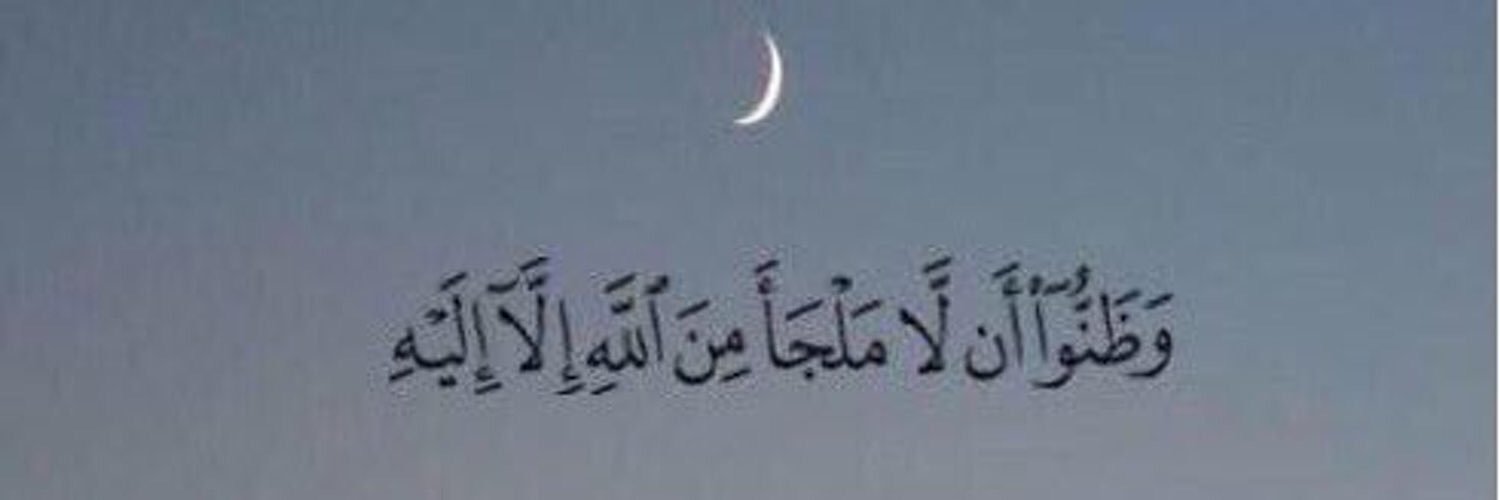 وَظَنُّوٓا۟ أَن لَّا مَلْجَأَ مِنَ ٱللَّهِ إِلَّآ إِلَيْهِ